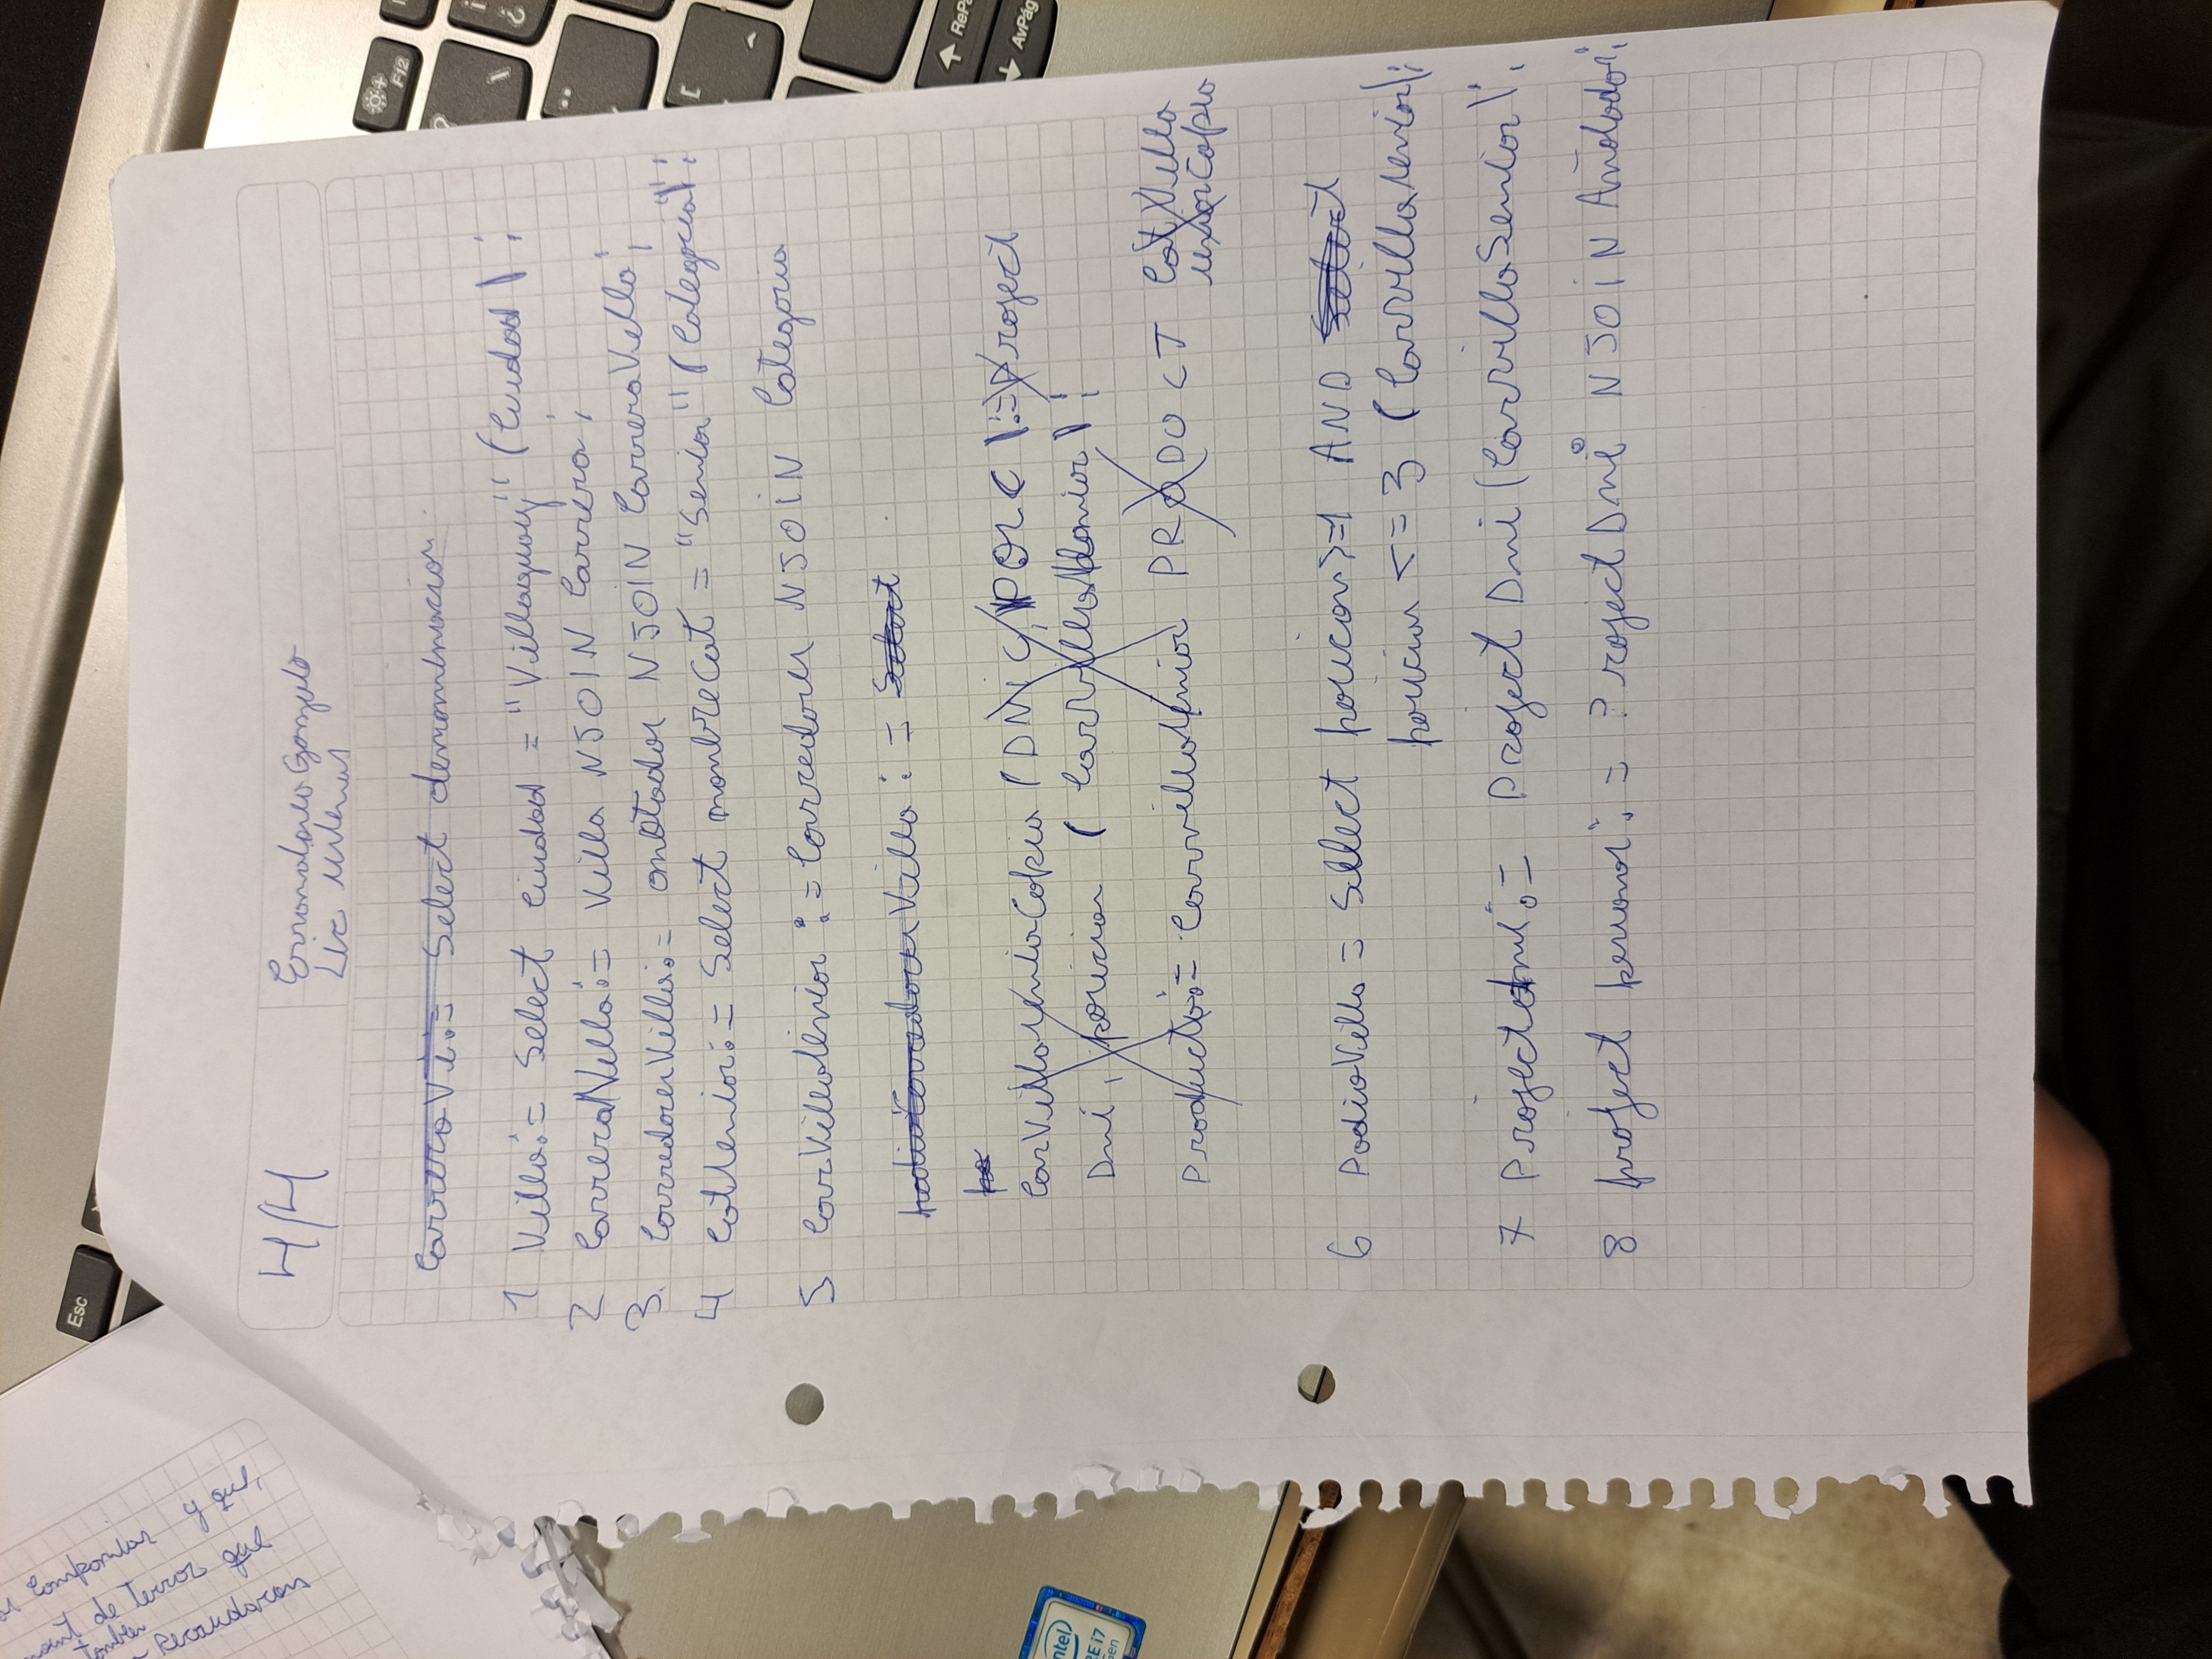 componlas y que,
de Terror que
tambien
Recaudaron
Esc
4/4
Erramdarea Gonzalo
Lic
CarreraVi:= Select denominacion
1 Villa:= Select ciudad = "Villaguay" (Ciudad);
2 CarreraVilla:= Villa NJOIN Carrera;
3. CorredoresVilla:= anotados NJOIN CarreraVilla;
4 CatSenior:= Select nombreCat = "Senior" (Categoria);
5 CorVillaSenior := Corredores NJOIN Categoria
podioCorredoresVilla := Select
po
CorVillaSeniorCopia (DNIC, POSC):= Project
Dni, posicion (CorVillaSenior);
Producto:= CorvillaSenior PRODUCT CatVilla
seniorCopia
6 PodioVilla = Select posicon >=1 AND Select
posicion <= 3 (CorvillaSenior);
7 Projectdni:= Project Dni (CorvillaSenior);
8 project personas:= ProjectDni NJOIN Añotados;
F12
?
¿
[
RePá
AvPág
intel
CORE i7
Gen